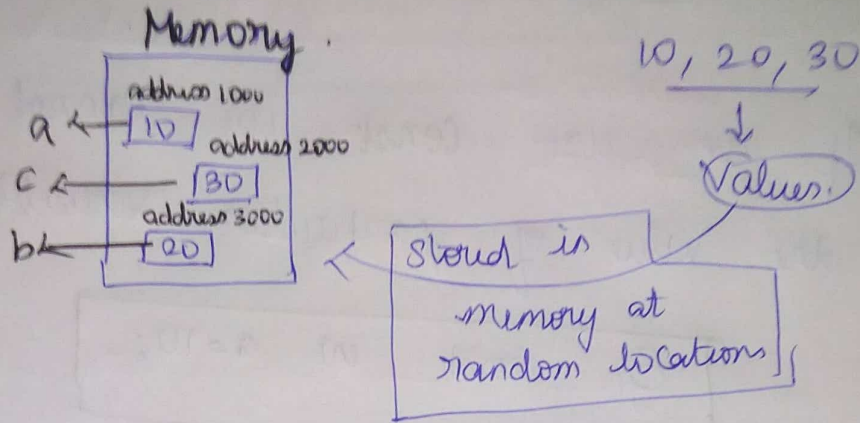 Memory.
10, 20, 30
address 1000
a 10
address 2000
c 30
address 3000
b 20
Values.
Stored in
memory at
random locations